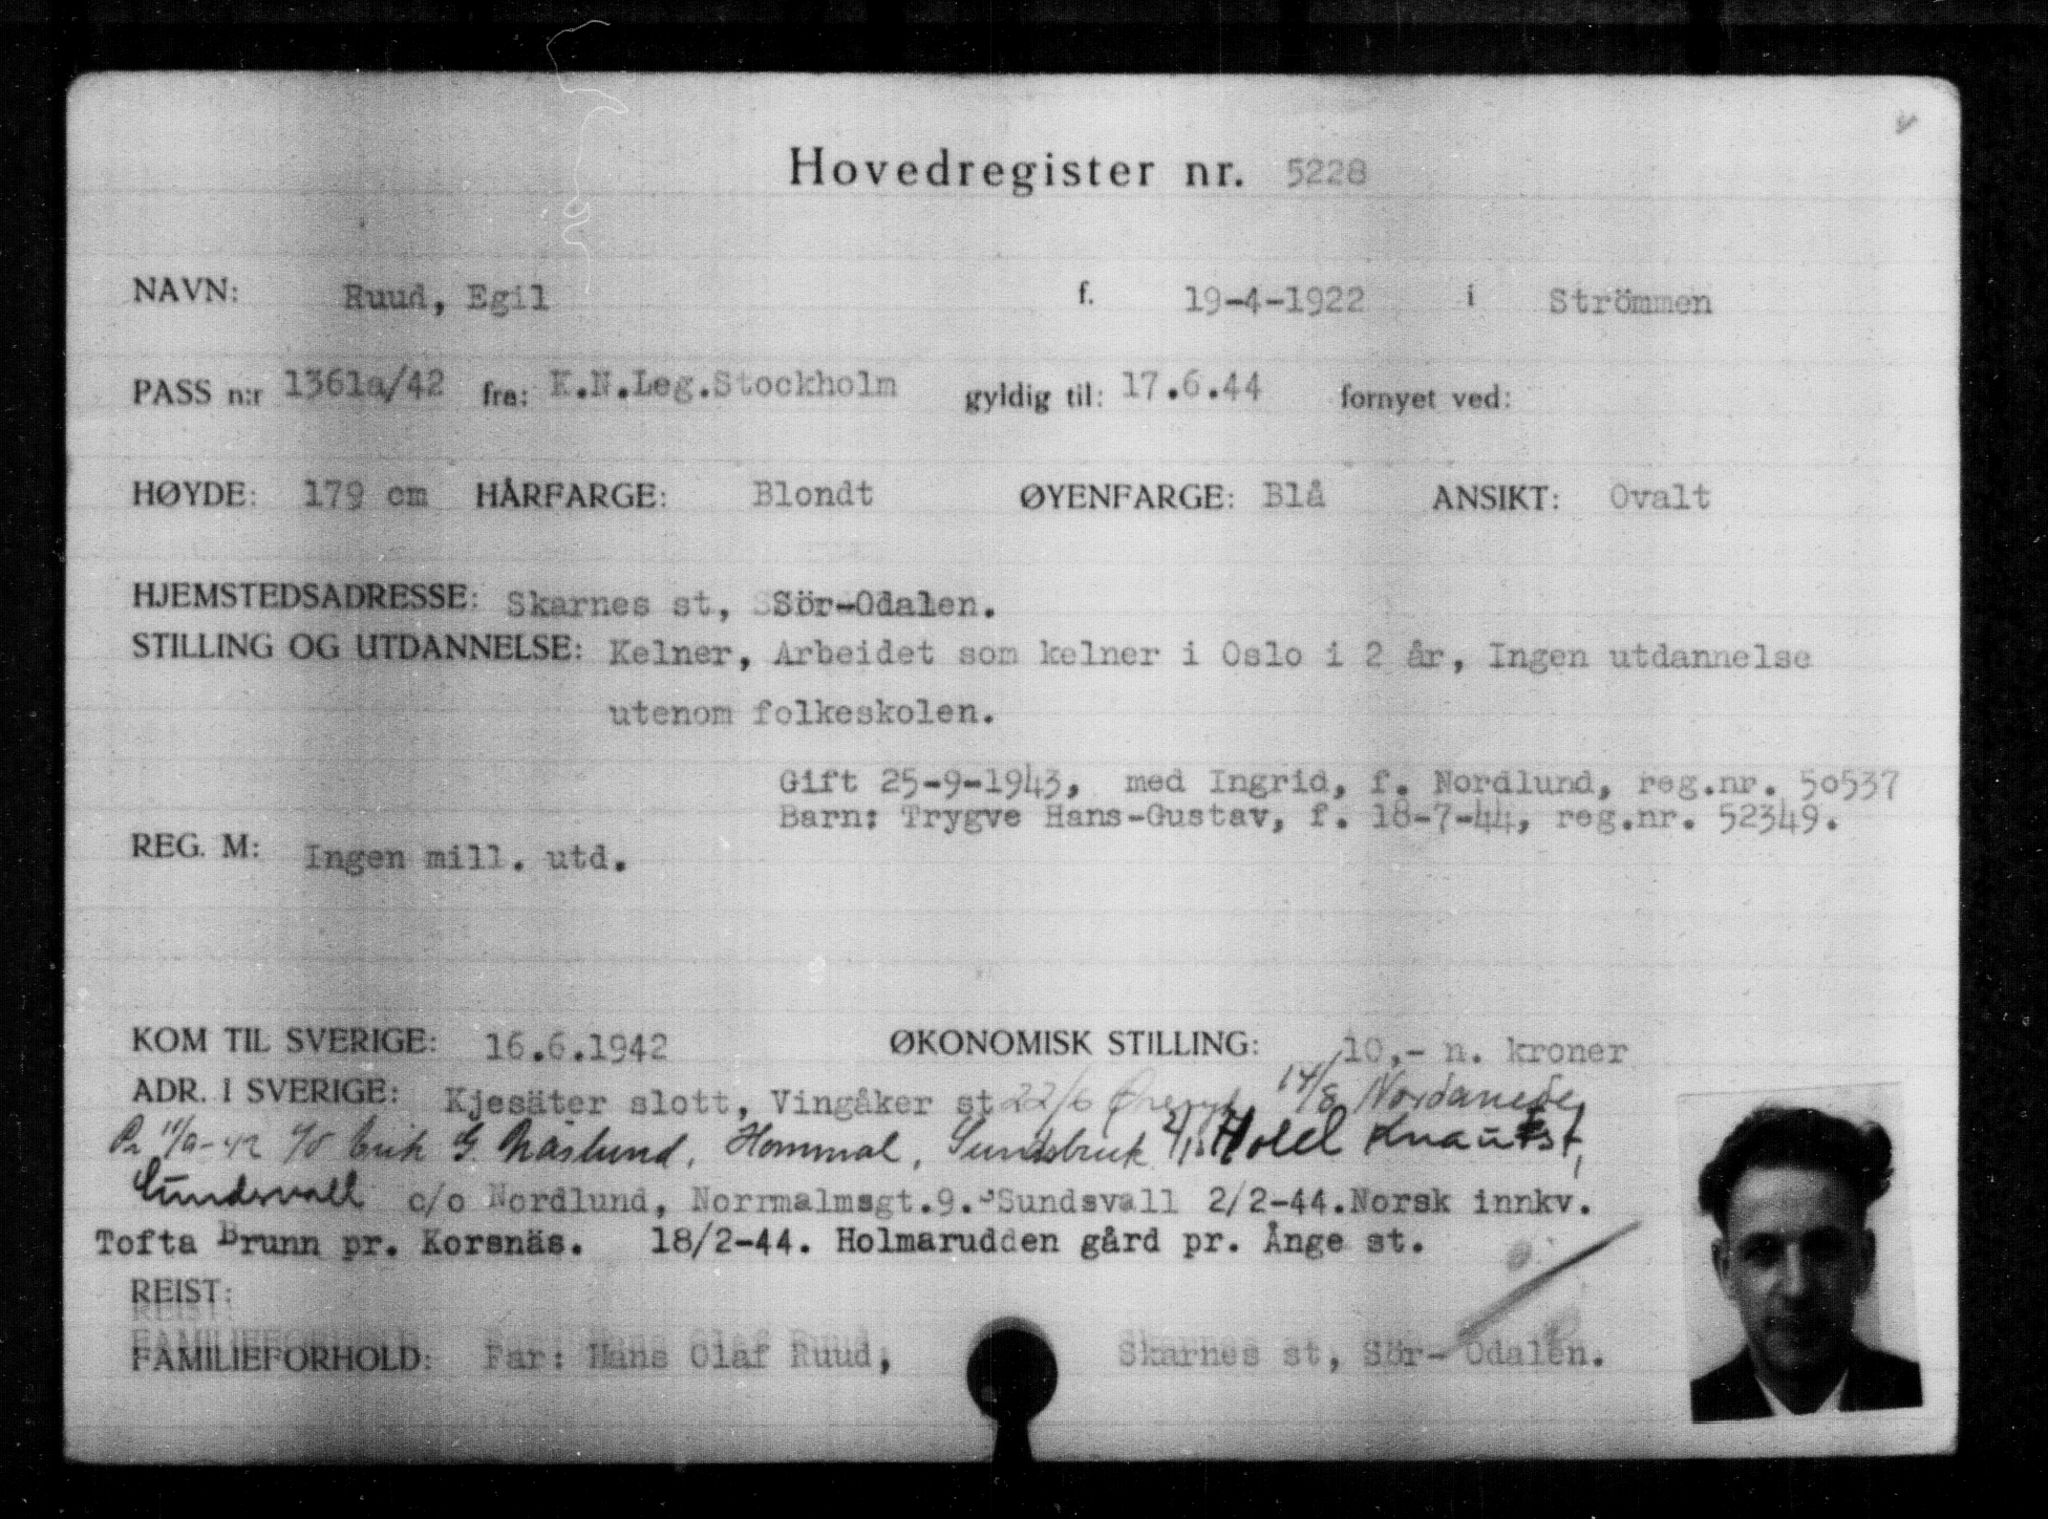 Hovedregister nr. 5228
NAVN: Ruud, Egil f. 19-4-1922 i Strömmen
PASS n:r 1361a/42 fra: K.N.Leg.Stockholm gyldig til: 17.6.44 fornyet ved:
HØYDE: 179 cm HÅRFARGE: Blondt ØYENFARGE: Blå ANSIKT: Ovalt
HJEMSTEDSADRESSE: Skarnes st, Sör-Odalen.
STILLING OG UTDANNELSE: Kelner, Arbeidet som kelner i Oslo i 2 år, Ingen utdannelse
utenom folkeskolen.
Gift 25-9-1943, med Ingrid, f. Nordlund, reg.nr. 50537
Barn: Trygve Hans-Gustav, f. 18-7-44, reg.nr. 52349.
REG. M: Ingen mill. utd.
KOM TIL SVERIGE: 16.6.1942 ØKONOMISK STILLING: 10,- n. kroner
ADR. I SVERIGE: Kjesäter slott, Vingåker st 22/6 14/8 Nordanede
11/9-42 c/o Erik G. Näslund, Hommal, Sundsbruk Hotel Knaust,
Sundsvall c/o Nordlund, Norrmalmsgt.9. Sundsvall 2/2-44.Norsk innkv.
Tofta Brunn pr. Korsnäs. 18/2-44. Holmarudden gård pr. Ånge st.
REIST:
FAMILIEFORHOLD: Far: Hans Olaf Ruud, Skarnes st, Sör- Odalen.